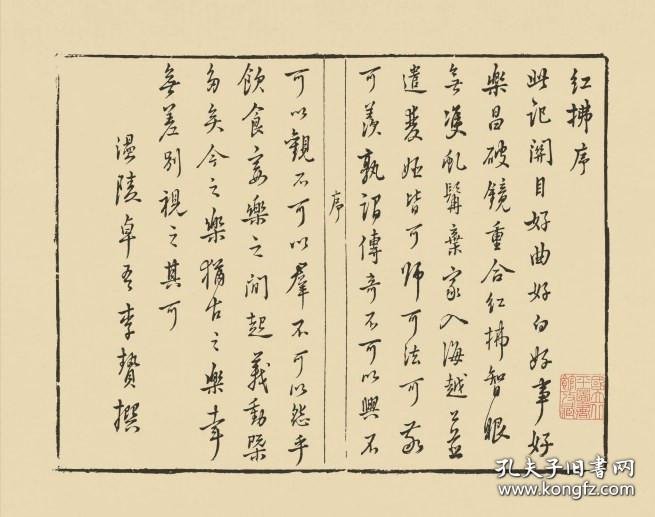 红拂序
此記關目好曲好白好事好
樂昌破鏡重合红拂智眼
無雙虬髯棄家入海越並
遣雙姬皆可師可法可敬
可羨孰謂傳奇不可以興不
序
可以觀不可以羣不可以怨乎
飲食宴樂之間起義動槩
多矣今之樂猶古之樂幸
無差別視之其可
温陵卓吾李贄撰
孔夫子旧书网
www.kongfz.com